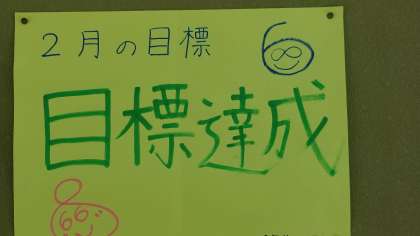 2月の目標
目標達成